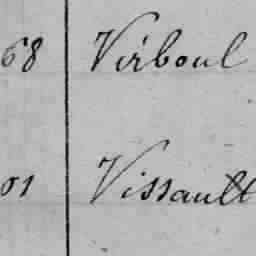 68 Virboul
01 Vissault